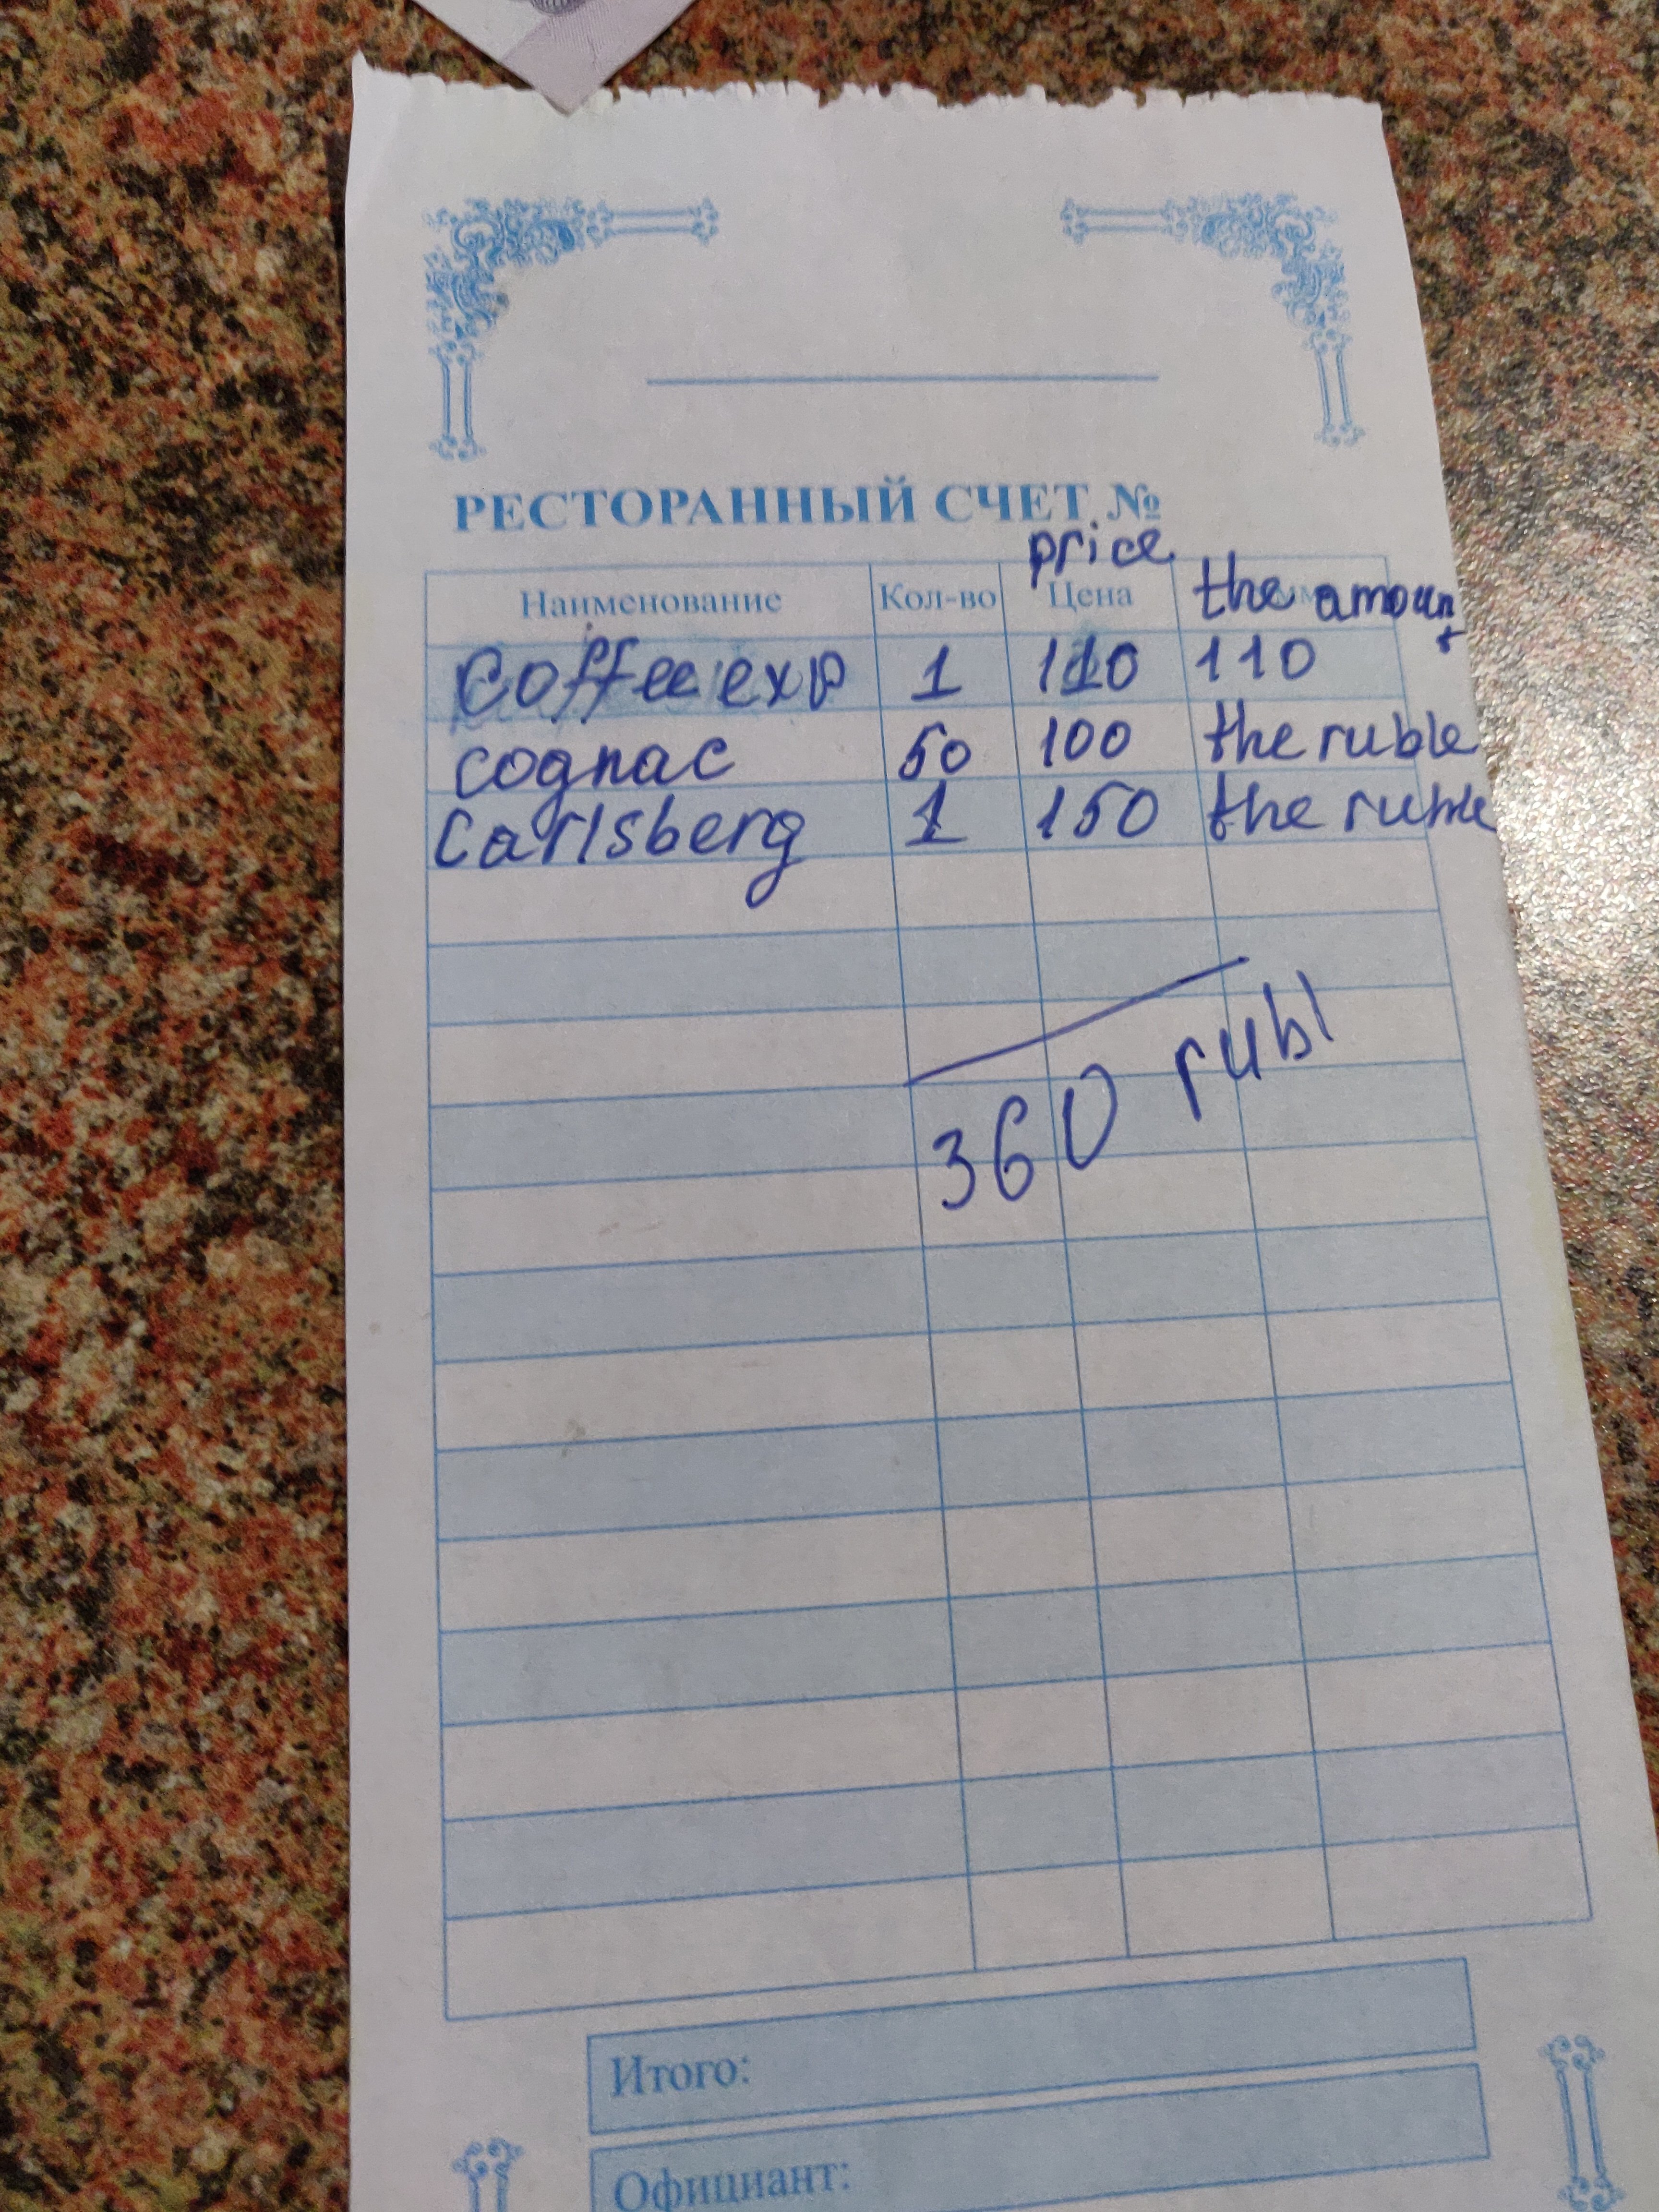 РЕСТОРАННЫЙ СЧЕТ №
price
Наименование Кол-во Цена the amount
Coffee exp 1 110 110
cognac 50 100 the ruble
Carlsberg 1 150 the ruble
360 rubl
Итого:
Официант: